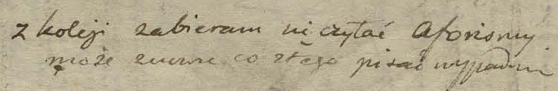 z koleji zabieram się czytać Aforismy
może znowu co złego pisać wypadnie